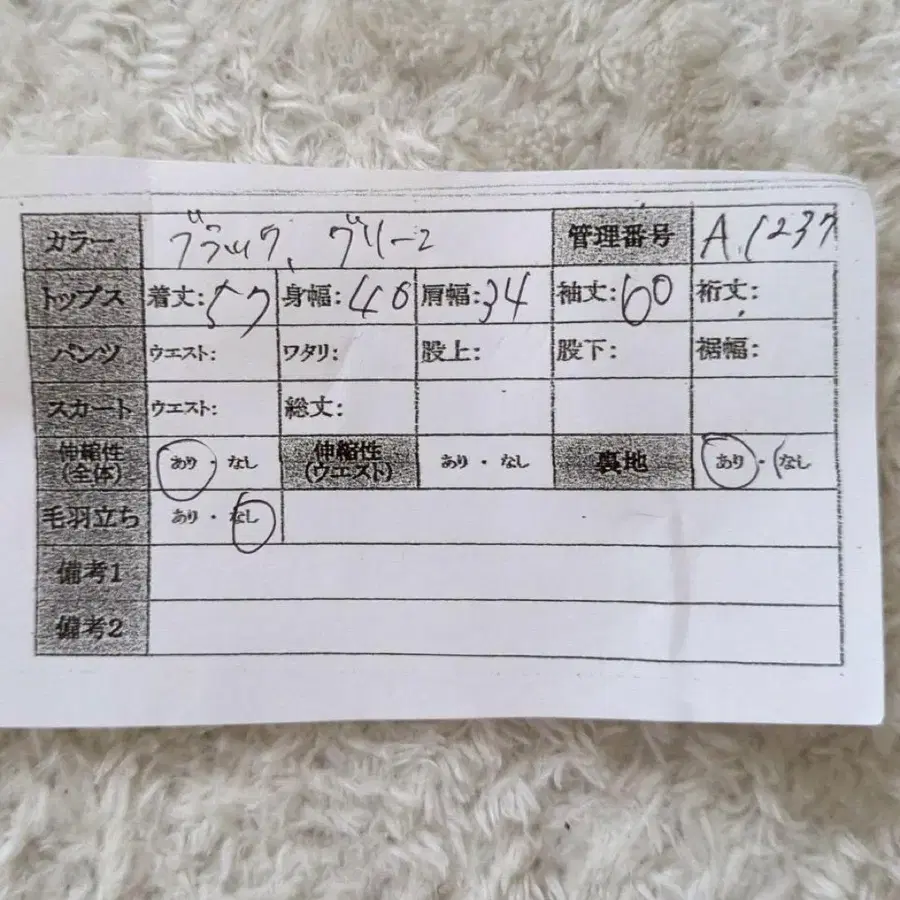 カラー ブラック、グリーン 管理番号 A1237
トップス 着丈:57 身幅:46 肩幅:34 袖丈:60 裄丈:
パンツ ウエスト: ワタリ: 股上: 股下: 裾幅:
スカート ウエスト: 総丈:
伸縮性(全体) あり・なし 伸縮性(ウエスト) あり・なし 裏地 あり・なし
毛羽立ち あり・なし
備考1
備考2